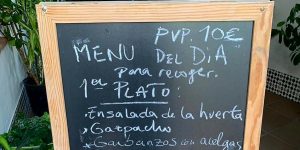 PVP. 10€
MENU DEL DIA
para recoger.
1er PLATO:
• Ensalada de la huerta
• Gazpacho
• Garbanzos con acelgas